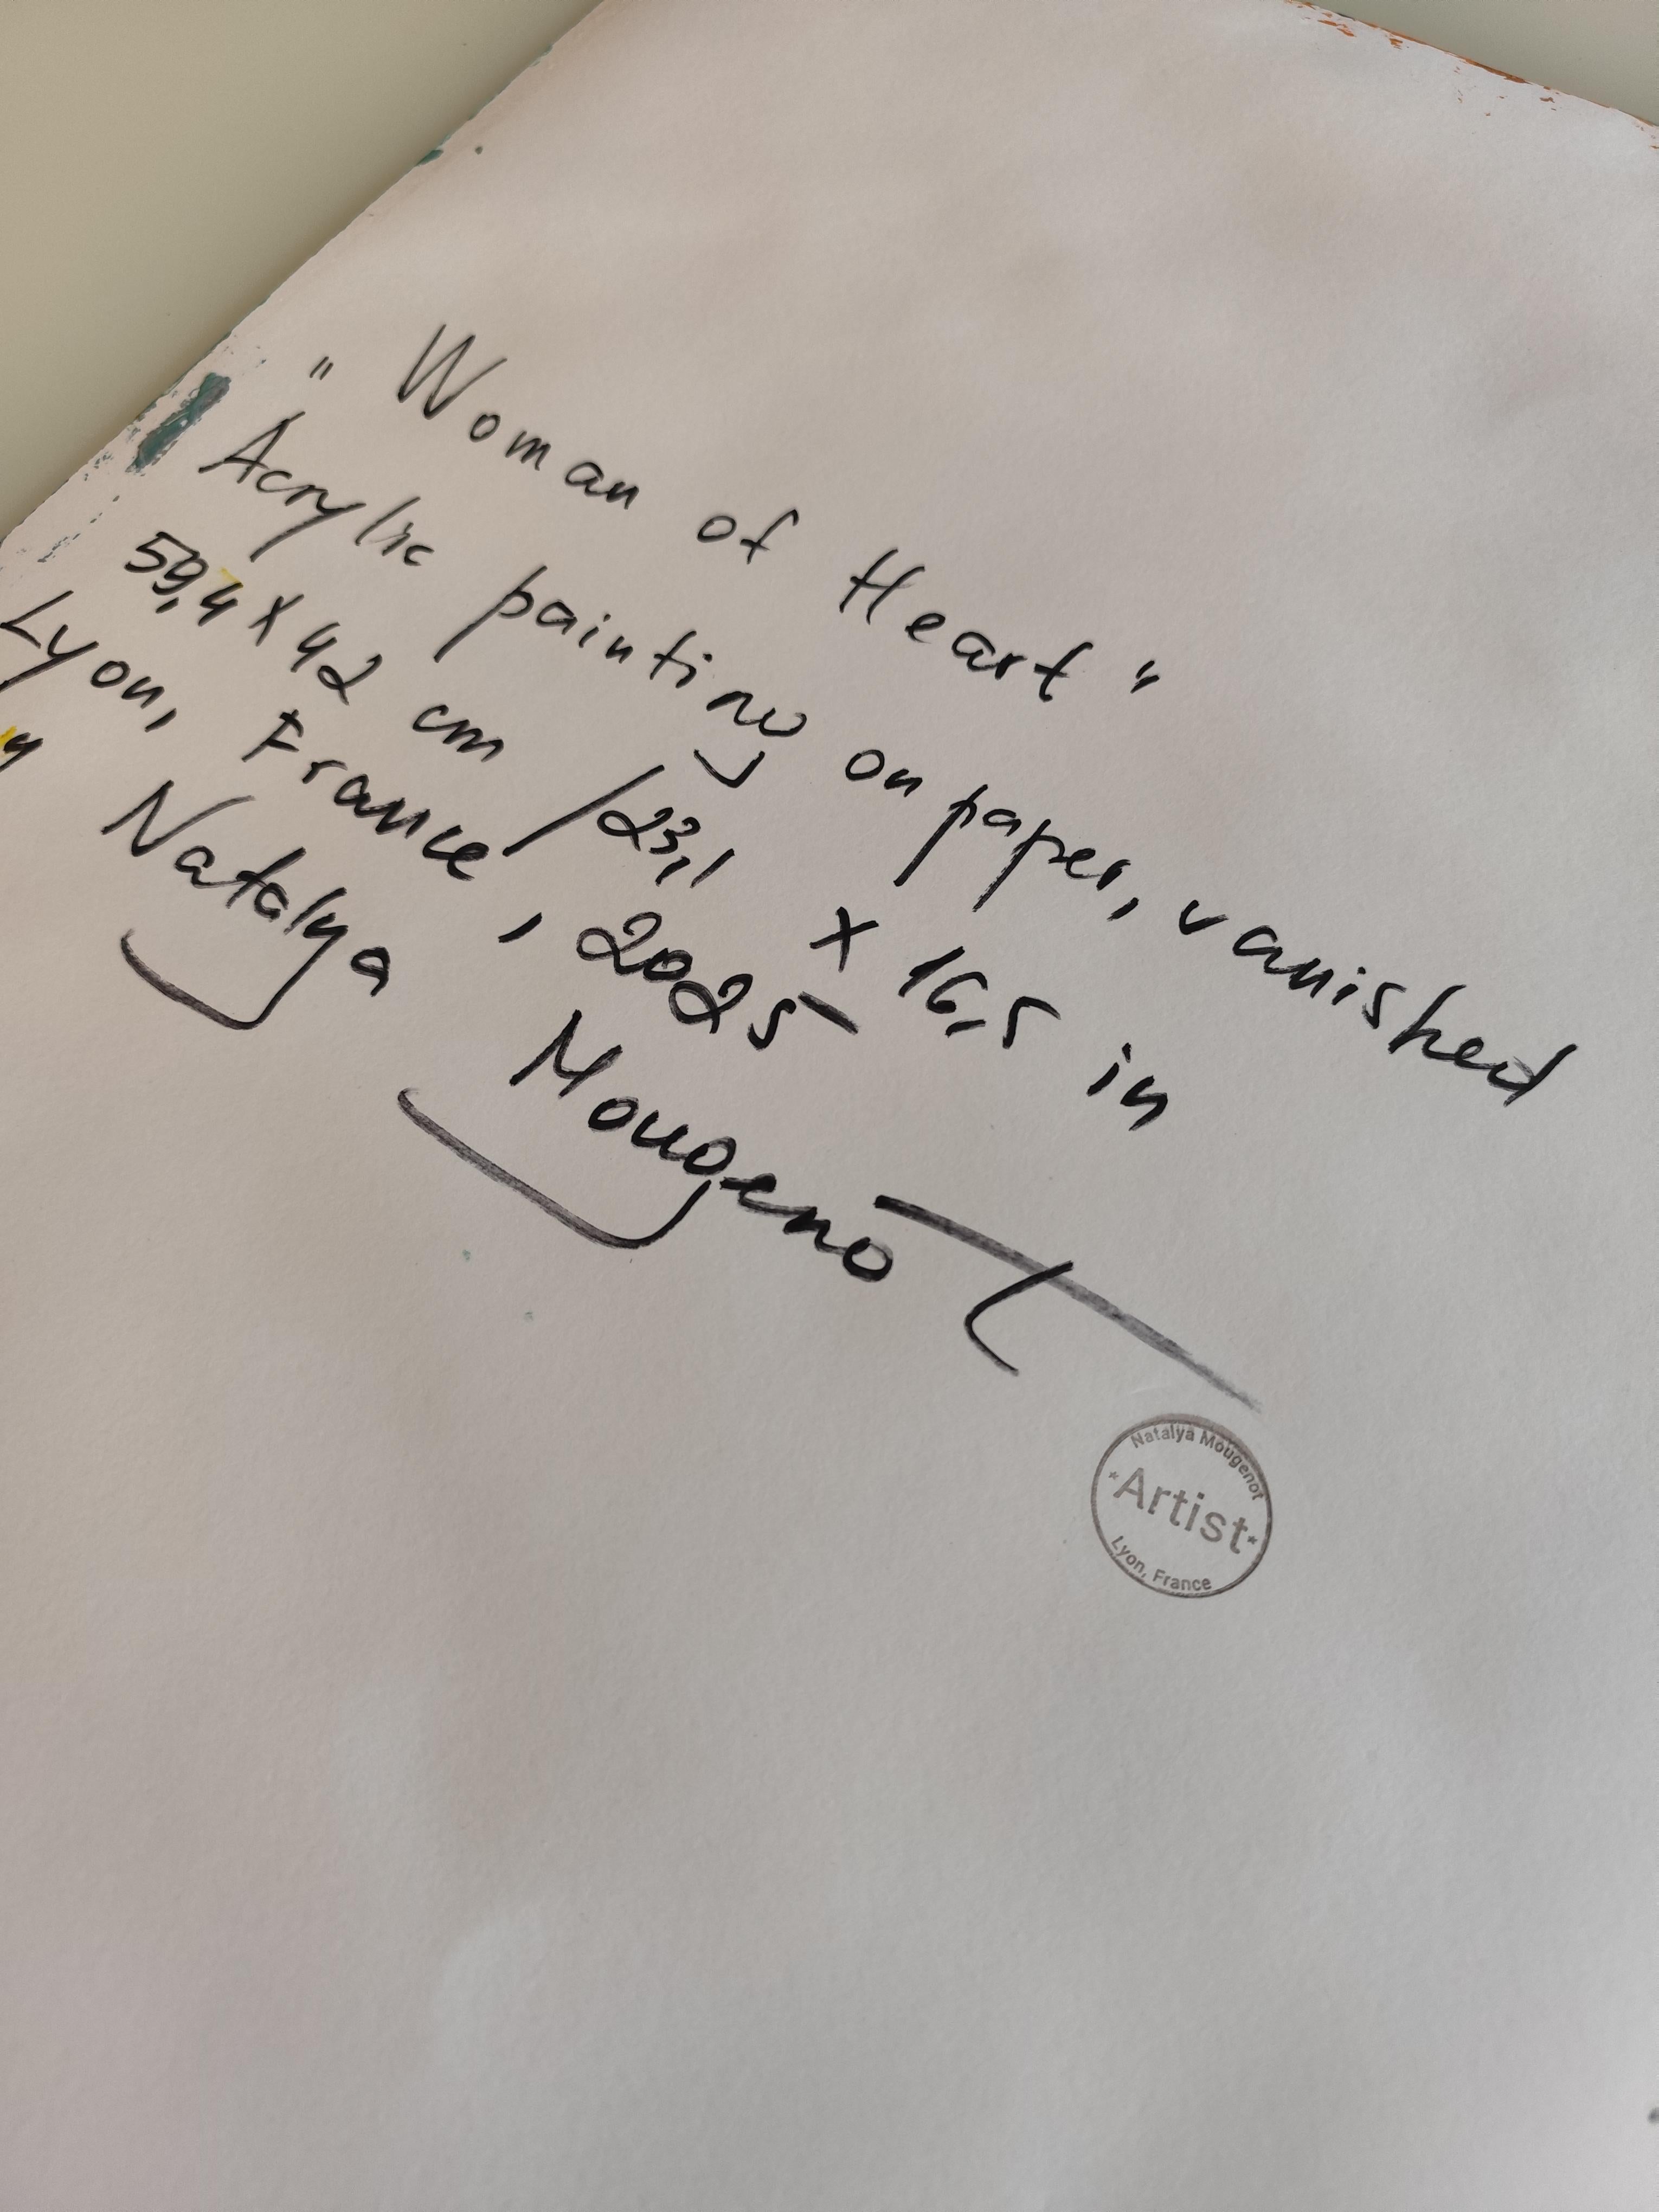 " Woman of Heart "
Acrylic painting on paper, vanished
59,4 x 42 cm / 23,1 x 16,5 in
Lyon, France, 2025
y Natalya Mougenot
Natalya Mougenot
*Artist*
Lyon, France